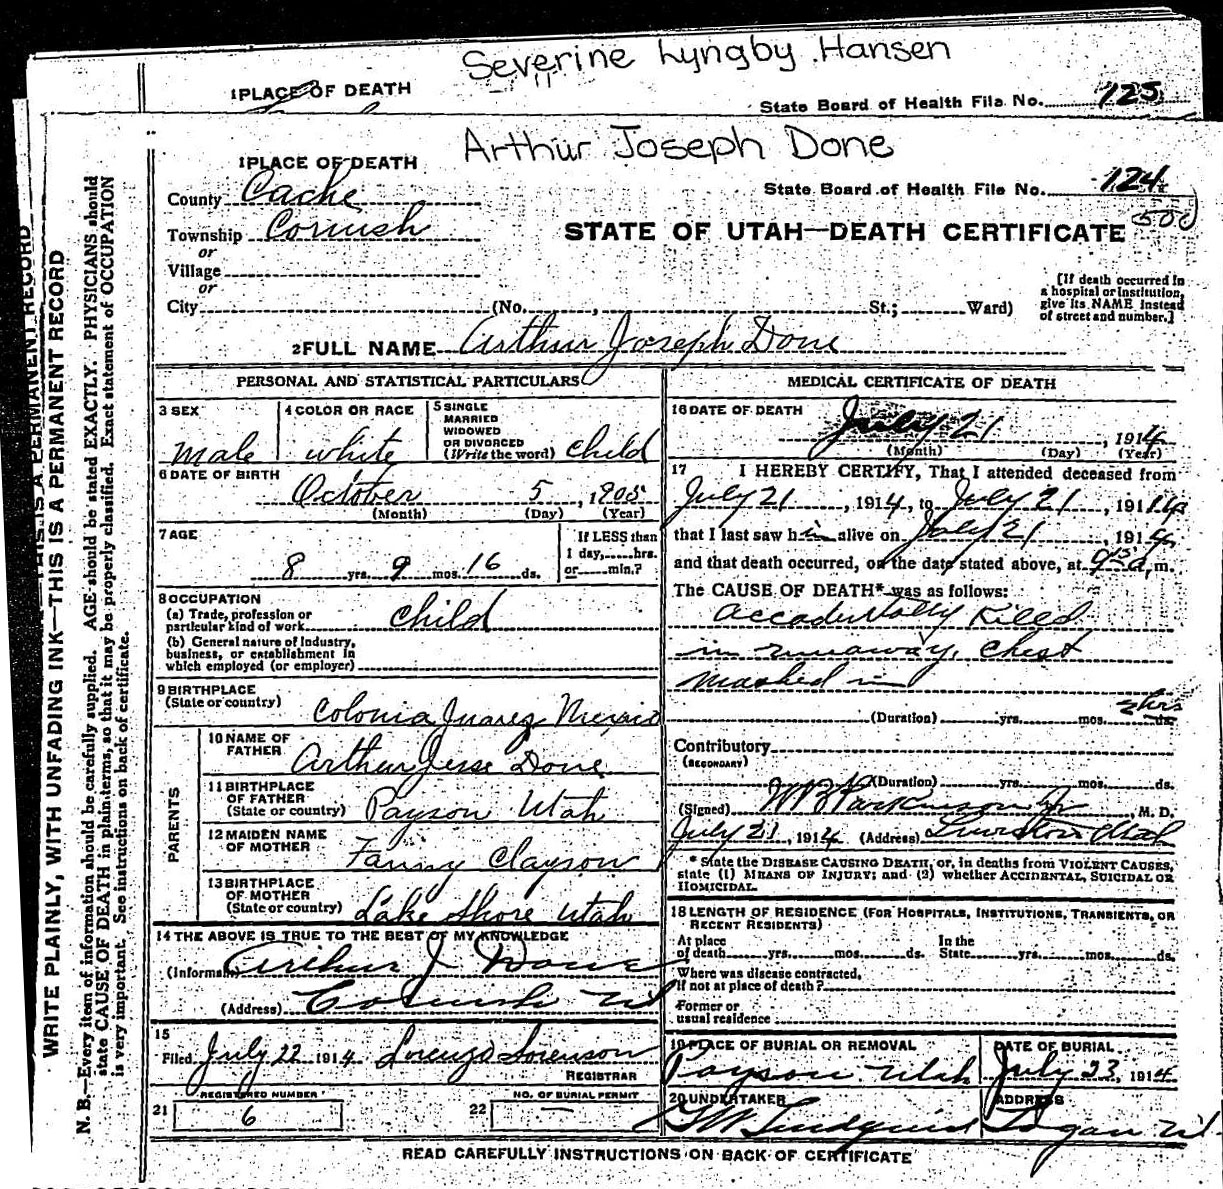 Severine Lyngby Hansen
1 PLACE OF DEATH
State Board of Health File No. 125
Arthur Joseph Done
1 PLACE OF DEATH
State Board of Health File No. 124
500
County Cache
Township Cornish
or
Village
or
City (No. , St.; Ward)
STATE OF UTAH—DEATH CERTIFICATE
[If death occurred in
a hospital or institution,
give its NAME instead
of street and number.]
2 FULL NAME Arthur Joseph Done
PERSONAL AND STATISTICAL PARTICULARS
3 SEX
male
4 COLOR OR RACE
white
5 SINGLE
MARRIED
WIDOWED
OR DIVORCED
(Write the word) child
6 DATE OF BIRTH
October 5, 1905
(Month) (Day) (Year)
7 AGE
8 yrs. 9 mos. 16 ds.
If LESS than
1 day, hrs.
or min.?
8 OCCUPATION
(a) Trade, profession or
particular kind of work child
(b) General nature of industry,
business, or establishment in
which employed (or employer)
9 BIRTHPLACE
(State or country)
Colonia Juarez Mexico
PARENTS
10 NAME OF
FATHER
Arthur Jesse Done
11 BIRTHPLACE
OF FATHER
(State or country) Payson Utah
12 MAIDEN NAME
OF MOTHER
Fanny Clayson
13 BIRTHPLACE
OF MOTHER
(State or country) Lake Shore Utah
14 THE ABOVE IS TRUE TO THE BEST OF MY KNOWLEDGE
(Informant) Arthur J Done
(Address) Cornish Ut
15
Filed July 22 1914 Lorenzo Sorenson
REGISTRAR
REGISTERED NUMBER
21 6
NO. OF BURIAL PERMIT
22 —
MEDICAL CERTIFICATE OF DEATH
16 DATE OF DEATH
July 21, 1914
(Month) (Day) (Year)
17 I HEREBY CERTIFY, That I attended deceased from
July 21, 1914, to July 21, 1914
that I last saw him alive on July 21, 1914
and that death occurred, on the date stated above, at 9:15 a.m.
The CAUSE OF DEATH* was as follows:
accadentally Killed
in runaway, chest
mashed in
(Duration) yrs. mos. ds. 2 hrs
Contributory
(SECONDARY)
(Duration) yrs. mos. ds.
(Signed) W B Parkinson Jr, M. D.
July 21, 1914 (Address) Lewiston Utah
* State the DISEASE CAUSING DEATH, or, in deaths from VIOLENT CAUSES,
state (1) MEANS OF INJURY; and (2) whether ACCIDENTAL, SUICIDAL OR
HOMICIDAL.
18 LENGTH OF RESIDENCE (FOR HOSPITALS, INSTITUTIONS, TRANSIENTS, OR
RECENT RESIDENTS)
At place
of death yrs. mos. ds.
In the
State yrs. mos. ds.
Where was disease contracted,
if not at place of death?
Former or
usual residence
19 PLACE OF BURIAL OR REMOVAL
Payson Utah
DATE OF BURIAL
July 23, 1914
20 UNDERTAKER
G W Lindquist
ADDRESS
Logan Ut
READ CAREFULLY INSTRUCTIONS ON BACK OF CERTIFICATE
THIS IS A PERMANENT RECORD
WRITE PLAINLY, WITH UNFADING INK—THIS IS A PERMANENT RECORD
N. B.—Every item of information should be carefully supplied. AGE should be stated EXACTLY. PHYSICIANS should
state CAUSE OF DEATH in plain terms, so that it may be properly classified. Exact statement of OCCUPATION
is very important. See instructions on back of certificate.